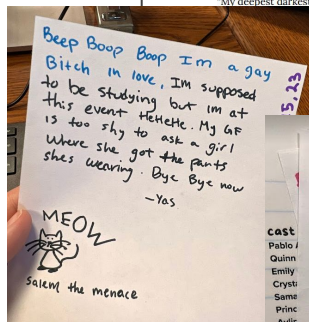 My deepest darkest
Beep Boop Boop Im a gay
Bitch in love, Im supposed
to be studying but im at
this event HeHeHe. My GF
is too shy to ask a girl
where she got the pants
shes wearing. Bye Bye now
-Yas
MEOW
Salem the menace
5,23
cast
Pablo
Quinn
Emily
Cryst
Sama
Princ